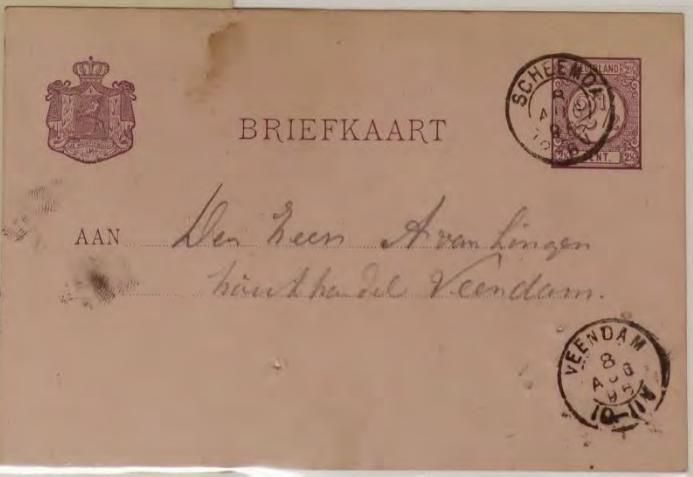 SCHEEMDA
8
BRIEFKAART
2½
CENT.
AAN Den Heer A van Lingen
houthandel Veendam.
VEENDAM
8
AUG
95
10-11V